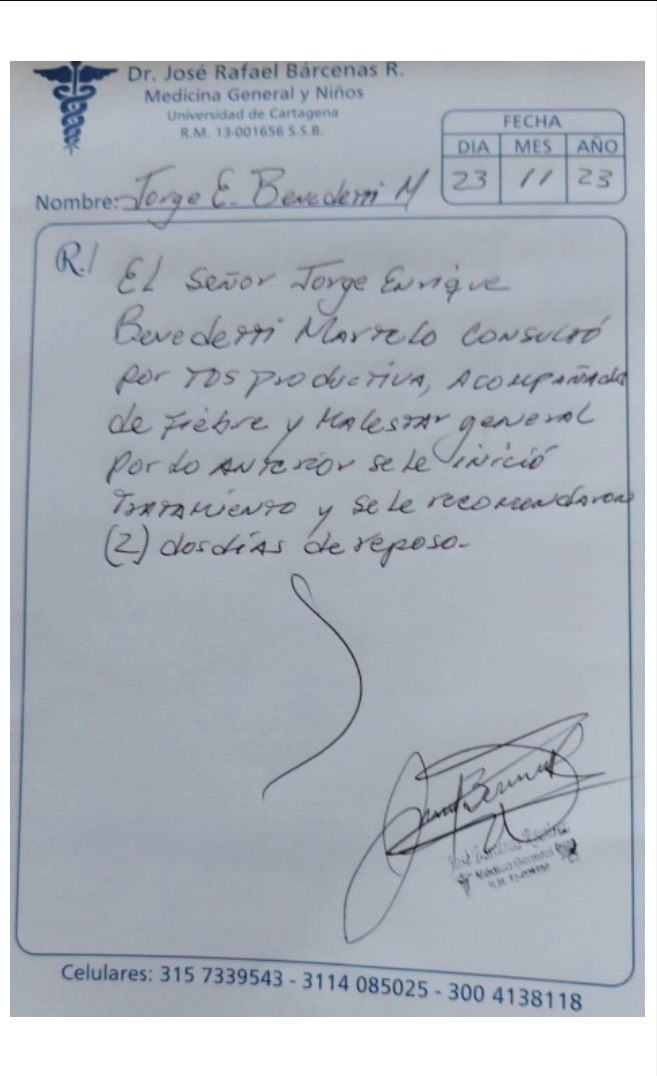 Dr. José Rafael Bárcenas R.
Medicina General y Niños
Universidad de Cartagena
R.M. 13-001656 S.S.B.
FECHA
DIA MES AÑO
23 11 23
Nombre: Jorge E. Benedetti M
R./
El Señor Jorge Enrique
Benedetti Martelo consultó
por tos productiva, acompañada
de fiebre y malestar general
por lo anterior se le inició
tratamiento y se le recomendaron
(2) dos días de reposo.
José Bárcenas
Médico General
R.M.
Celulares: 315 7339543 - 3114 085025 - 300 4138118